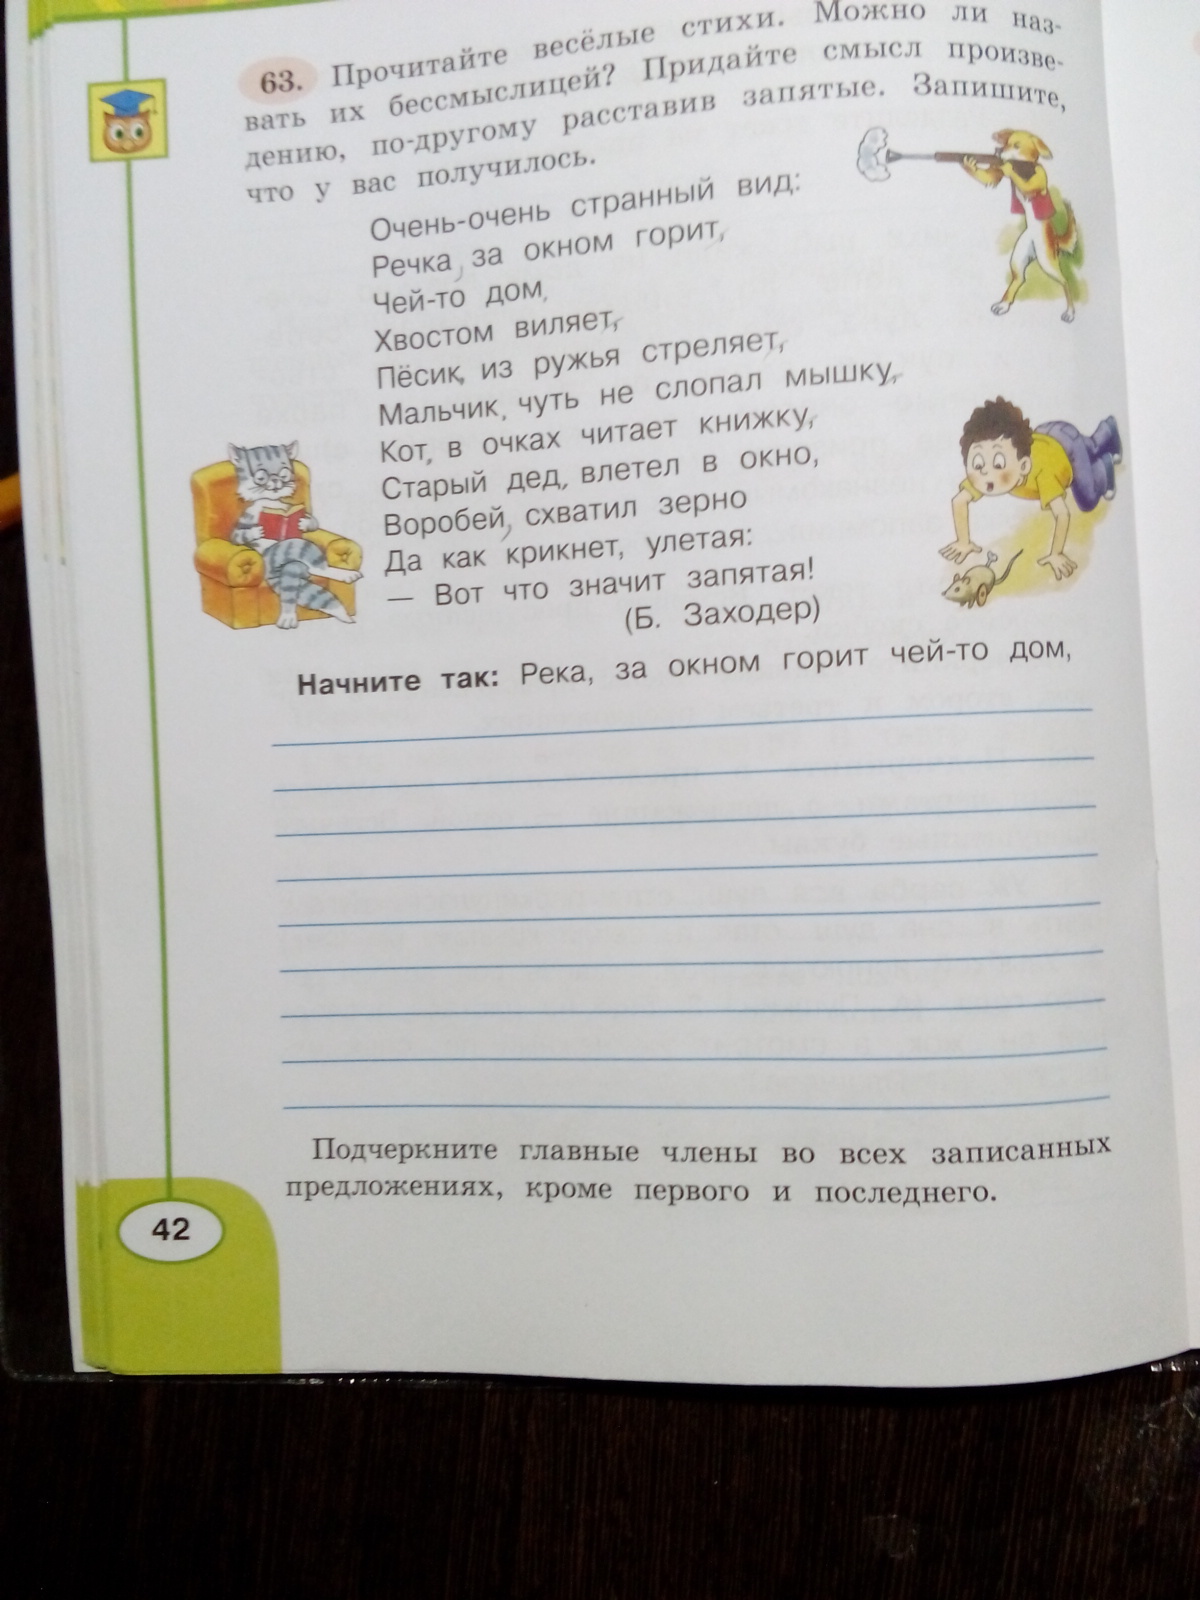 63. Прочитайте весёлые стихи. Можно ли наз-
вать их бессмыслицей? Придайте смысл произве-
дению, по-другому расставив запятые. Запишите,
что у вас получилось.
Очень-очень странный вид:
Речка, за окном горит,
Чей-то дом,
Хвостом виляет,
Пёсик, из ружья стреляет,
Мальчик, чуть не слопал мышку,
Кот, в очках читает книжку,
Старый дед, влетел в окно,
Воробей, схватил зерно
Да как крикнет, улетая:
— Вот что значит запятая!
(Б. Заходер)
Начните так: Река, за окном горит чей-то дом,
Подчеркните главные члены во всех записанных
предложениях, кроме первого и последнего.
42